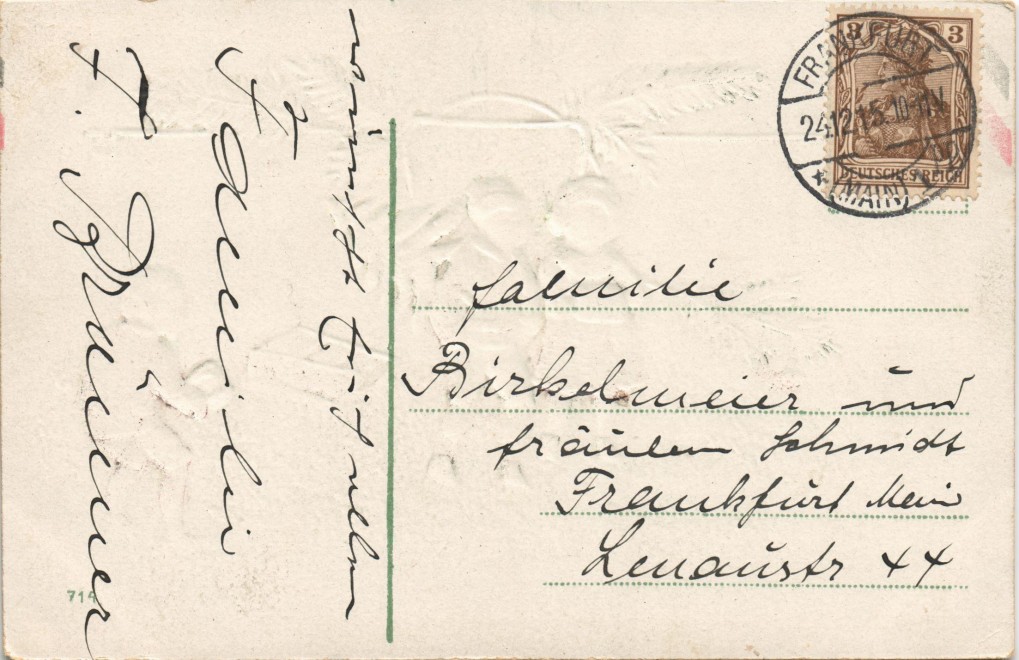 wünscht
Familie
F. Brünner
3 3
FRANKFURT
24.12.15.10-11V
* (MAIN)
DEUTSCHES REICH
familie
Birkelmeier und
fräulein Schmidt
Frankfurt Main
Lenaustr 44
714